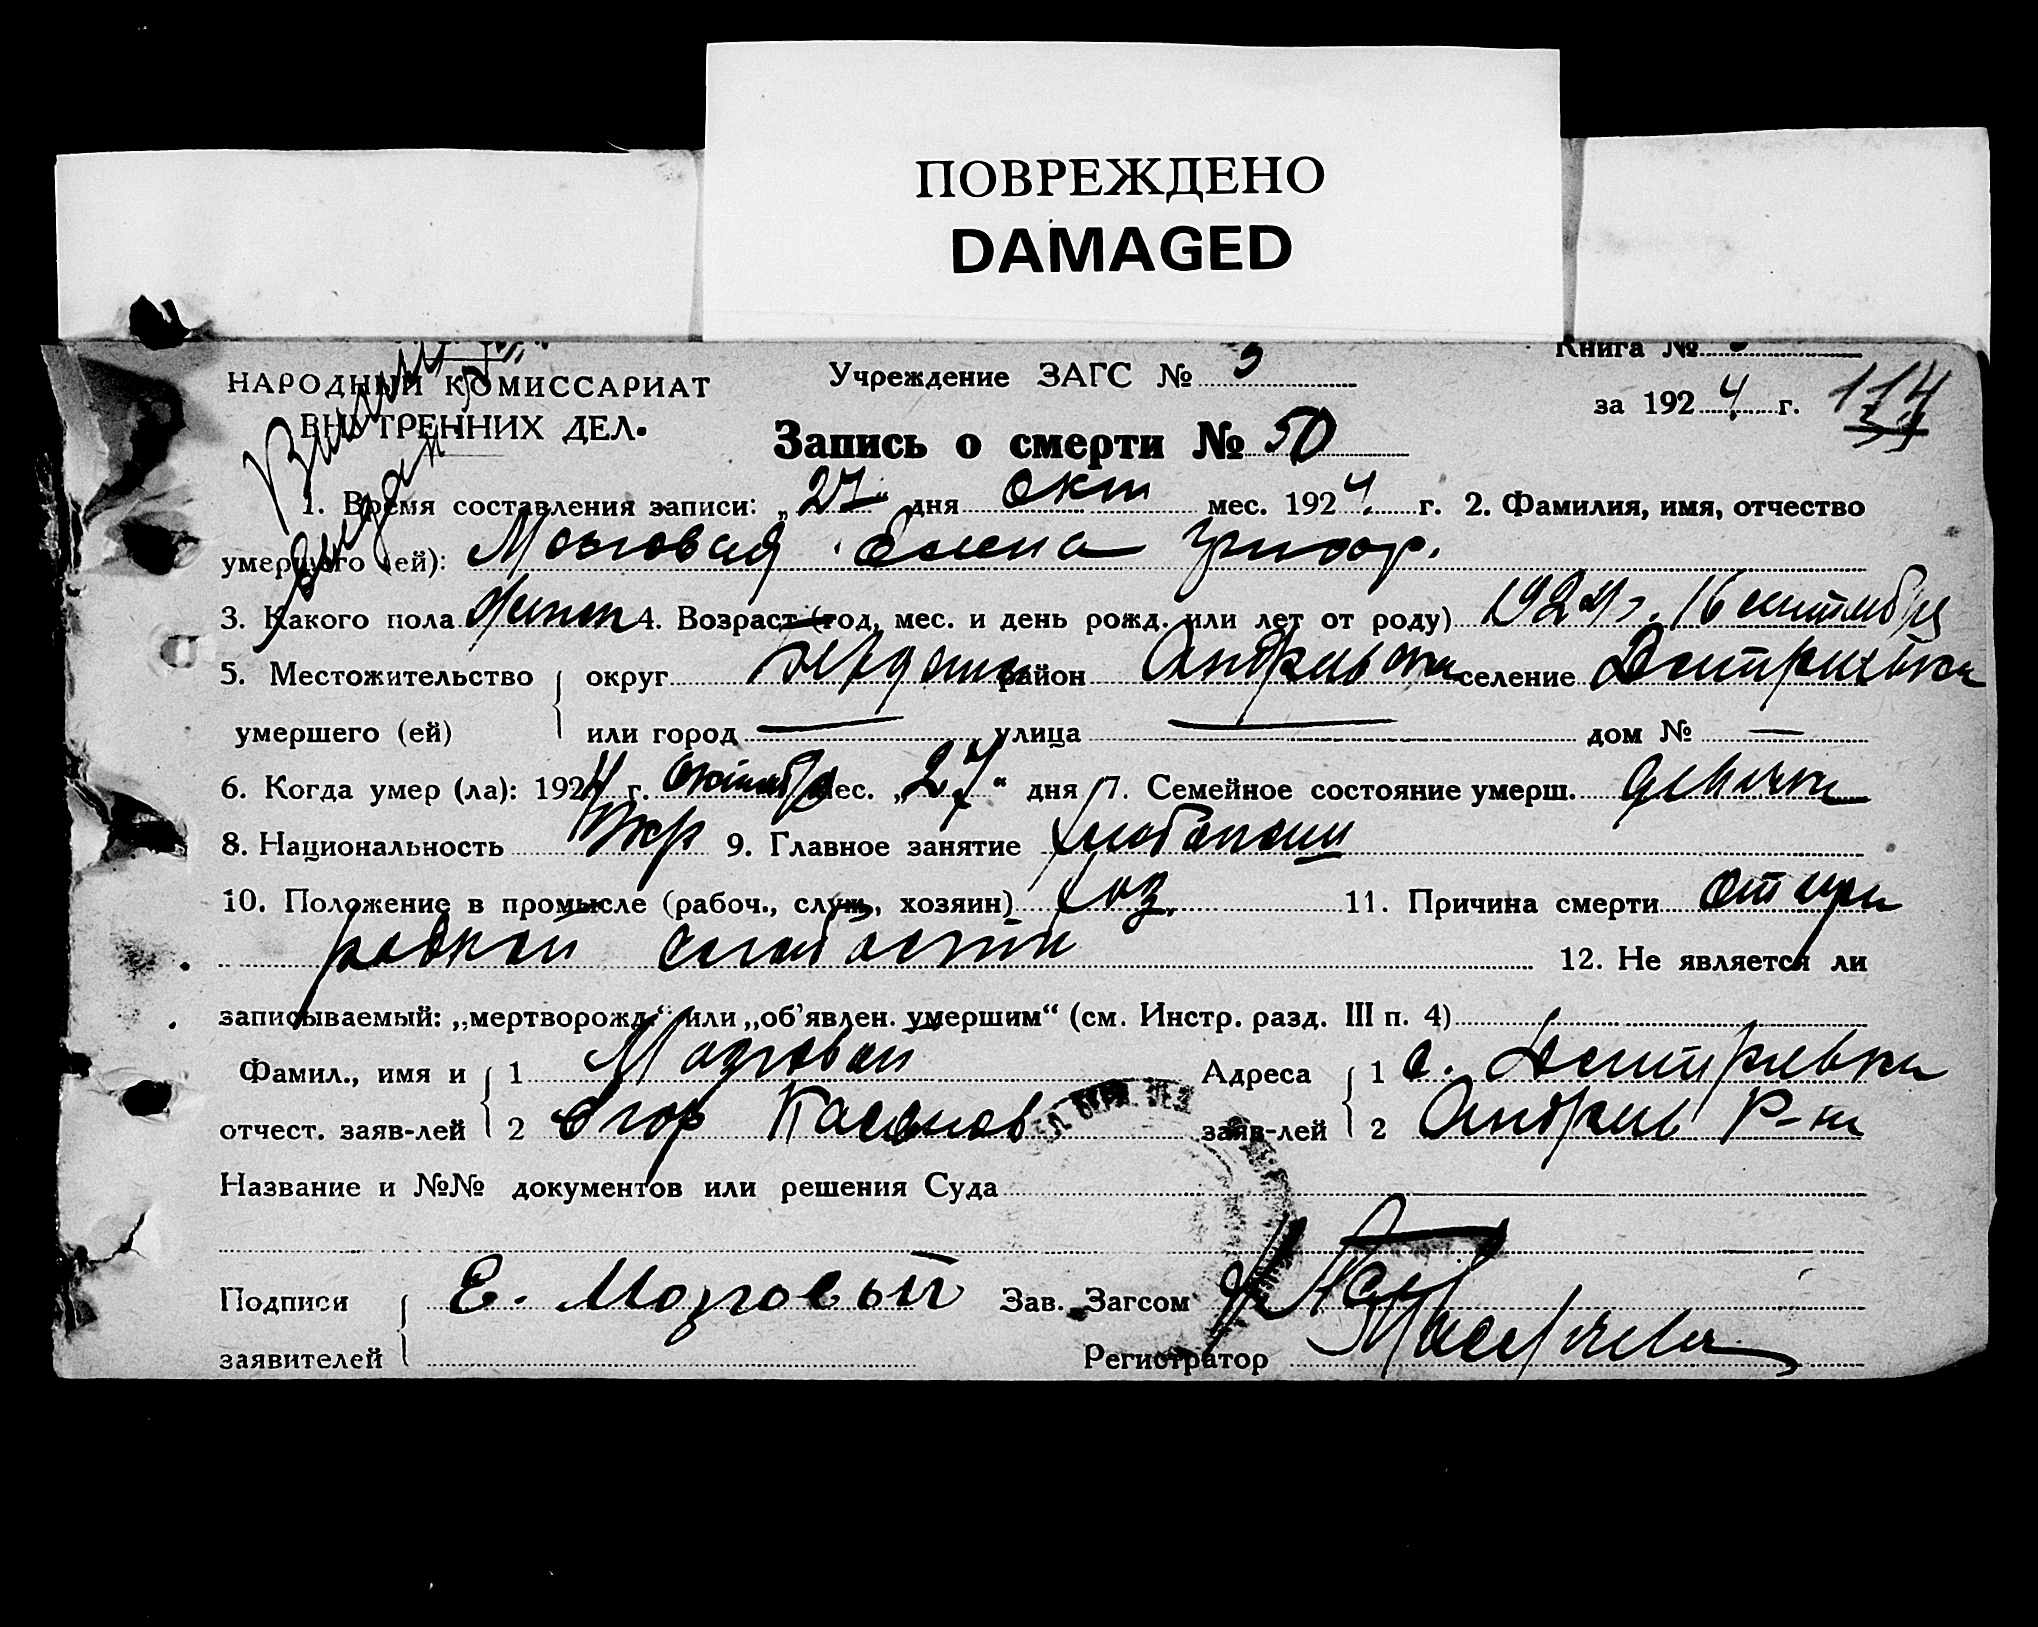 ПОВРЕЖДЕНО
DAMAGED
Книга №
НАРОДНЫЙ КОМИССАРИАТ Учреждение ЗАГС № 3
за 1924 г. 114
ВНУТРЕННИХ ДЕЛ.
Запись о смерти № 50
1. Время составления записи: „27“ дня Окт мес. 1924 г. 2. Фамилия, имя, отчество
умершего (ей): Мозговая Елена
3. Какого пола женск 4. Возраст (год, мес. и день рожд. или лет от роду) 1924 г. 16 сентября
5. Местожительство округ район селение Дмитриевка
умершего (ей) или город — улица — дом № —
6. Когда умер (ла): 1924 г. Октября мес. „27“ дня 7. Семейное состояние умерш. девочка
8. Национальность Укр 9. Главное занятие
10. Положение в промысле (рабоч., служ., хозяин) Хоз. 11. Причина смерти от
слабости 12. Не является ли
записываемый: „мертворожд.“ или „об'явлен. умершим“ (см. Инстр. разд. III п. 4)
Фамил., имя и 1 Мозговой Адреса 1 с. Дмитриевка
отчест. заяв-лей 2 Егор заяв-лей 2 Андреев Р-на
Название и №№ документов или решения Суда
Подписи Е. Мозговый Зав. Загсом
заявителей Регистратор